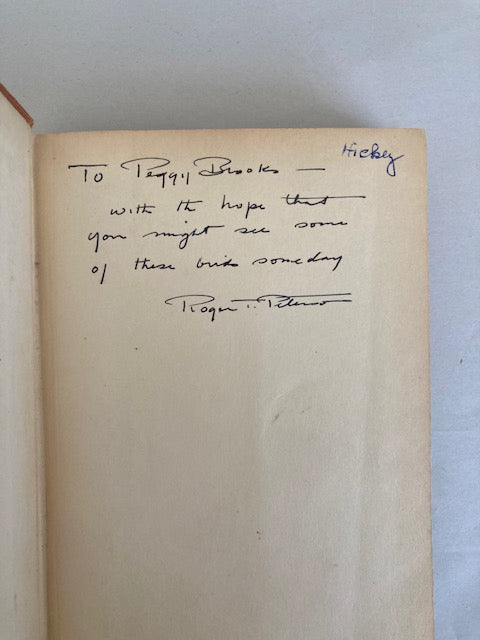 Hickey
To Peggy Brooks —
with th hope that
you might see some
of these birds someday
Roger T. Peterson